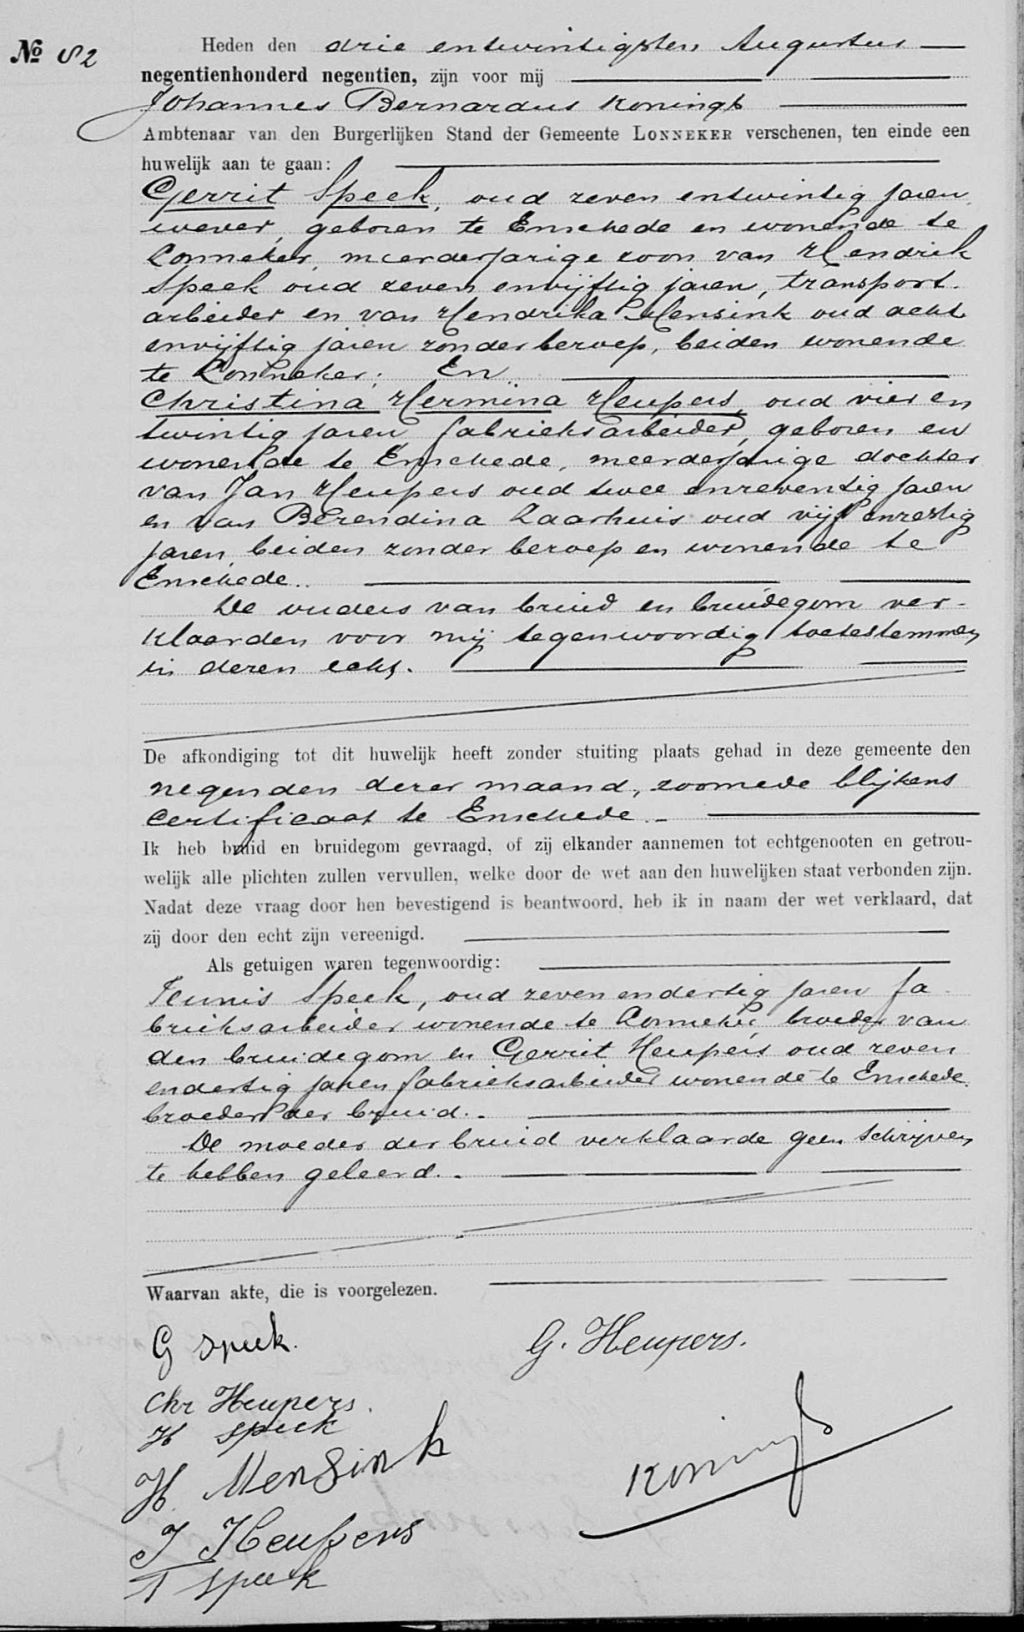 № 82
Heden den drie entwintigsten Augustus
negentienhonderd negentien, zijn voor mij
Johannes Bernardus Koningh
Ambtenaar van den Burgerlijken Stand der Gemeente LONNEKER verschenen, ten einde een
huwelijk aan te gaan:
Gerrit Speek, oud zeven entwintig jaren,
wever, geboren te Enschede en wonende te
Lonneker, meerderjarige zoon van Hendrik
Speek oud zeven envijftig jaren, transport-
arbeider en van Hendrika Mensink oud acht
envijftig jaren zonder beroep, beiden wonende
te Lonneker; En
Christina Hermina Heupers, oud vier en
twintig jaren, fabrieksarbeider, geboren en
wonende te Enschede, meerderjarige dochter
van Jan Heupers oud twee enzeventig jaren
en van Berendina Laarhuis oud vijf enzestig
jaren, beiden zonder beroep en wonende te
Enschede.
De ouders van bruid en bruidegom ver-
klaarden voor mij tegenwoordig toetestemmen
in dezen echt.
De afkondiging tot dit huwelijk heeft zonder stuiting plaats gehad in deze gemeente den
negenden dezer maand, zoomede blijkens
certificaat te Enschede.
Ik heb bruid en bruidegom gevraagd, of zij elkander aannemen tot echtgenooten en getrou-
welijk alle plichten zullen vervullen, welke door de wet aan den huwelijken staat verbonden zijn.
Nadat deze vraag door hen bevestigend is beantwoord, heb ik in naam der wet verklaard, dat
zij door den echt zijn vereenigd.
Als getuigen waren tegenwoordig:
Teunis Speek, oud zeven endertig jaren fa-
brieksarbeider wonende te Lonneker, broeder van
den bruidegom en Gerrit Heupers oud zeven
endertig jaren fabrieksarbeider wonende te Enschede,
broeder der bruid.
De moeder der bruid verklaarde geen schrijven
te hebben geleerd.
Waarvan akte, die is voorgelezen.
G Speek.
G. Heupers.
Chr Heupers.
H Speek
H. Mensink
Koningh
J Heupers
T Speek